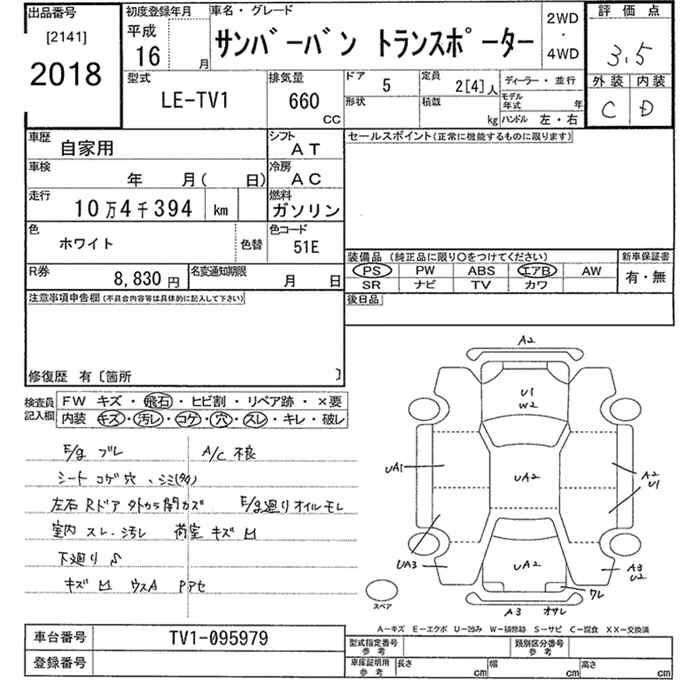 出品番号
[2141]
2018
初度登録年月
平成
16 月
車名・グレード
サンバーバン トランスポーター
2WD
・
4WD
評価点
3.5
外装 内装
C D
型式
LE-TV1
排気量
660
CC
ドア 5
定員 2[4]人
ディーラー・並行
形状
積載 kg
モデル年式 年
ハンドル 左・右
車歴 自家用
シフト AT
セールスポイント(正常に機能するものに限ります)
車検 年 月( 日)
冷房 AC
走行 10万4千394 km
燃料 ガソリン
色 ホワイト 色替
色コード 51E
装備品 (純正品に限り○をつけてください)
新車保証書
PS PW ABS エアB AW
SR ナビ TV カワ
有・無
R券 8,830 円
名変通知期限 月 日
後日品
注意事項申告欄(不具合内容等は具体的に記入して下さい)
修復歴 有〔箇所 〕
検査員記入欄
FW キズ・飛石・ヒビ割・リペア跡・×要
内装 キズ・汚レ・コゲ・穴・スレ・キレ・破レ
E/g ブレ A/C 不良
シート コゲ穴、シミ
左右Rドア 外から開カズ E/g廻りオイルモレ
室内 スレ・汚レ 荷室 キズ凹
下廻り S
キズ凹 ウスA Pアセ
A2
U1
W2
UA1
UA2
A2
U1
UA3
UA2
A3
U2
ワレ
スペア
A3 オサレ
A-キズ E-エクボ U-凹み W-補修跡 S-サビ C-腐食 XX-交換済
車台番号 TV1-095979
登録番号
型式指定番号
参考
類別区分番号
参考
車庫証明用
参考
長さ cm
幅 cm
高さ cm